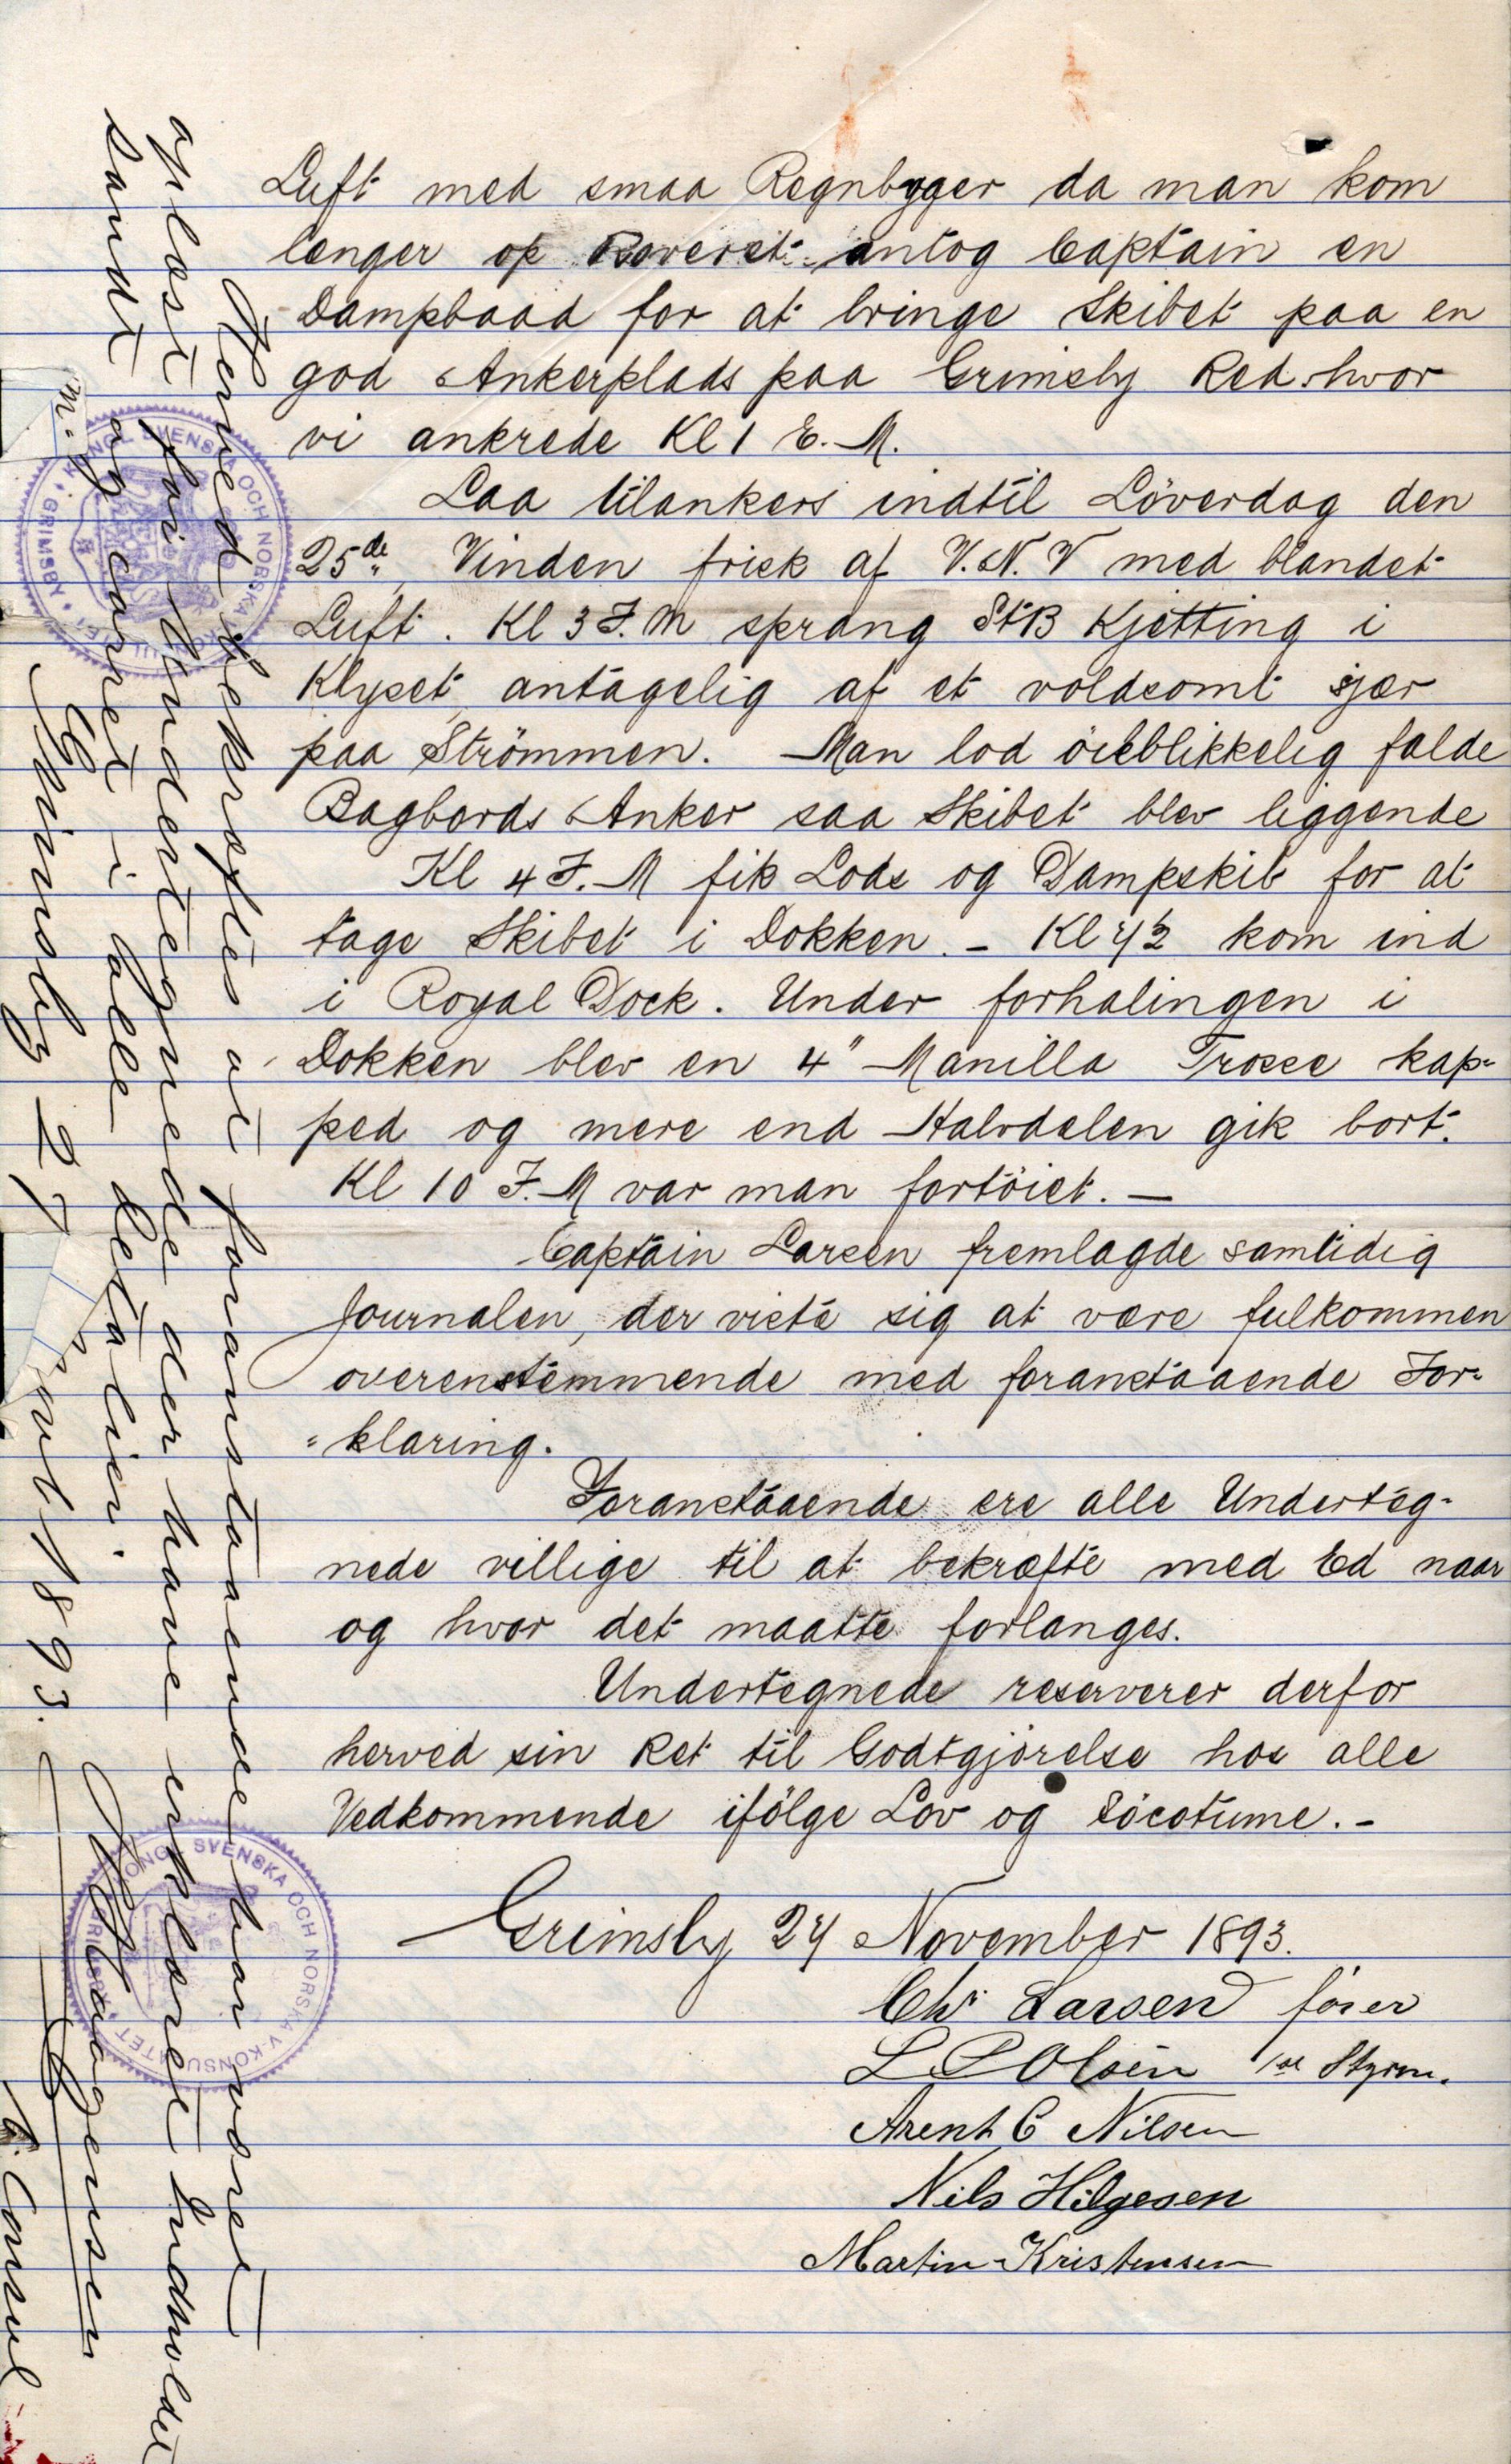 Luft med smaa Regnbyger da man kom
længer op Reveret antog Captain en
Dampbaad for at bringe Skibet paa en
god Ankerplads paa Grimsby Red. hvor
vi ankrede Kl 1 E. M.
Laa tilankers indtil Löverdag den
25de, Vinden frisk af V.N.V med blandet
Luft. Kl 3 F.M sprang StB Kjetting i
Klyset antagelig af et voldsomt sjær
paa Strömmen. Man lod öieblikkelig falde
Bagbords Anker saa Skibet blev liggende
Kl 4 F.M fik Lods og Dampskib for at
tage Skibet i Dokken. – Kl 4½ kom ind
i Royal Dock. Under forhalingen i
Dokken blev en 4" Manilla Trosse kap-
ped og mere end Halvdelen gik bort.
Kl 10 F.M var man fortöiet. —
Captain Larsen fremlagde samtidig
Journalen, der viste sig at være fulkommen
overenstemmende med foranstaaende For-
-klaring.
Foranstaaende ere alle Underteg-
nede villige til at bekræfte med Ed naar
og hvor det maatte forlanges.
Undertegnede reserverer derfor
herved sin Ret til Godtgjörelse hos alle
Vedkommende ifölge Lov og Söcotume. -
Grimsby 27 November 1893.
Chr. Larsen förer
L P Olsen 1ste Styrm.
Arent C Nilsen
Nils Hilgesen
Martin Kristensen
Herved bekræftes at foranstaaende har været
oplæst for Undertegnede der have erklæret Indholdet
sandt og correct i alle Detalier.
Grimsby 27 Novbr 1893.
Haagensen
V. Consul
KONGL SVENSKA OCH NORSKA V. KONSULATET GRIMSBY
KONGL SVENSKA OCH NORSKA V. KONSULATET GRIMSBY